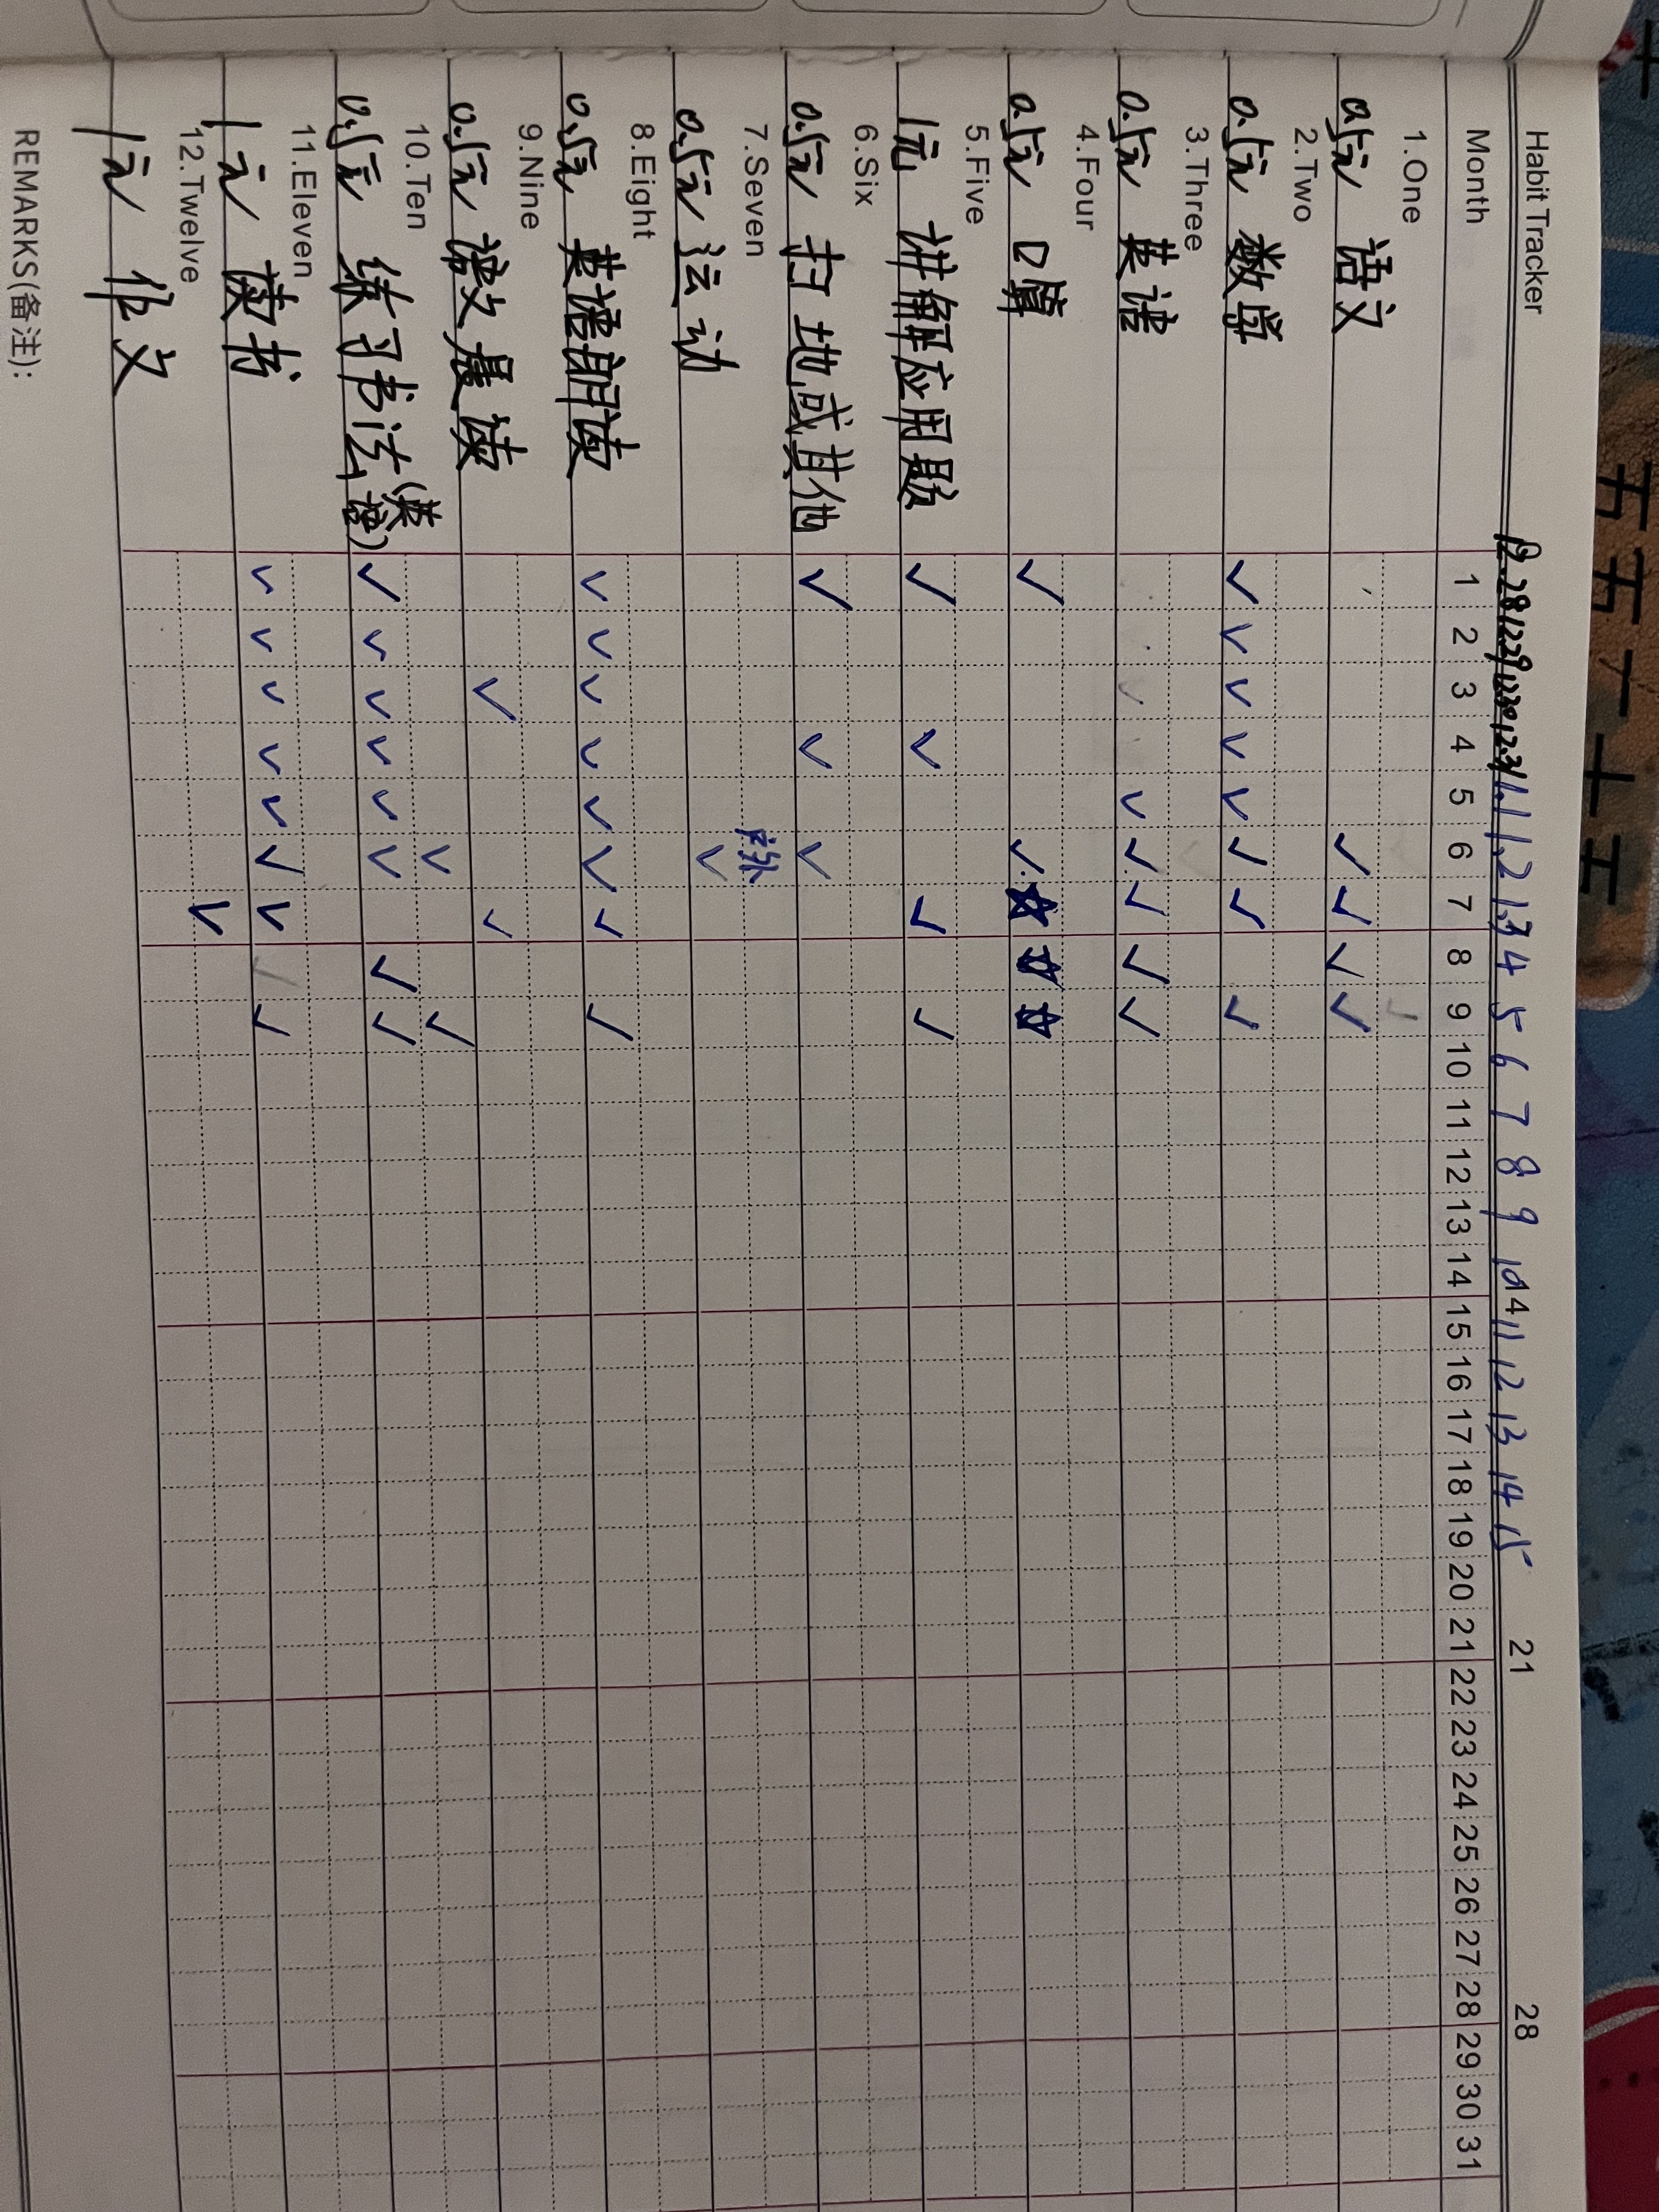 Habit Tracker 21 28
12.28 12.29 12.30 12.31 1.1 1.2 1.3 4 5 6 7 8 9 10 11 12 13 14 15
Month 1 2 3 4 5 6 7 8 9 10 11 12 13 14 15 16 17 18 19 20 21 22 23 24 25 26 27 28 29 30 31
1.One
0.5元 语文
2.Two
0.5元 数学
3.Three
0.5元 英语
4.Four
0.5元 口算
5.Five
1元 讲解应用题
6.Six
0.5元 扫地或其他
7.Seven
0.5元 运动
8.Eight
0.5元 英语朗读
9.Nine
0.5元 语文晨读
10.Ten
0.5元 练习书法(英语)
11.Eleven
1元 读书
12.Twelve
1元 作文
REMARKS(备注):